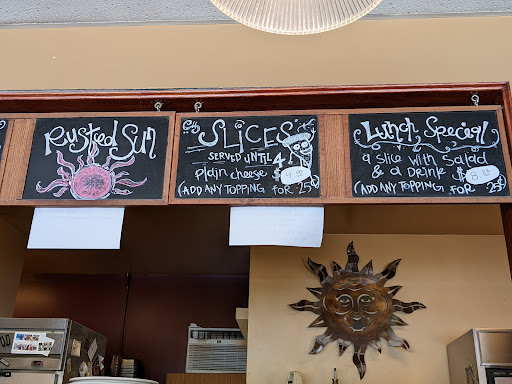 Rusted Sun
SLICES
SERVED UNTIL 4
plain cheese $
(ADD ANY TOPPING FOR 25¢)
Lunch Special
a slice with salad
& a drink $
(ADD ANY TOPPING FOR 25¢)